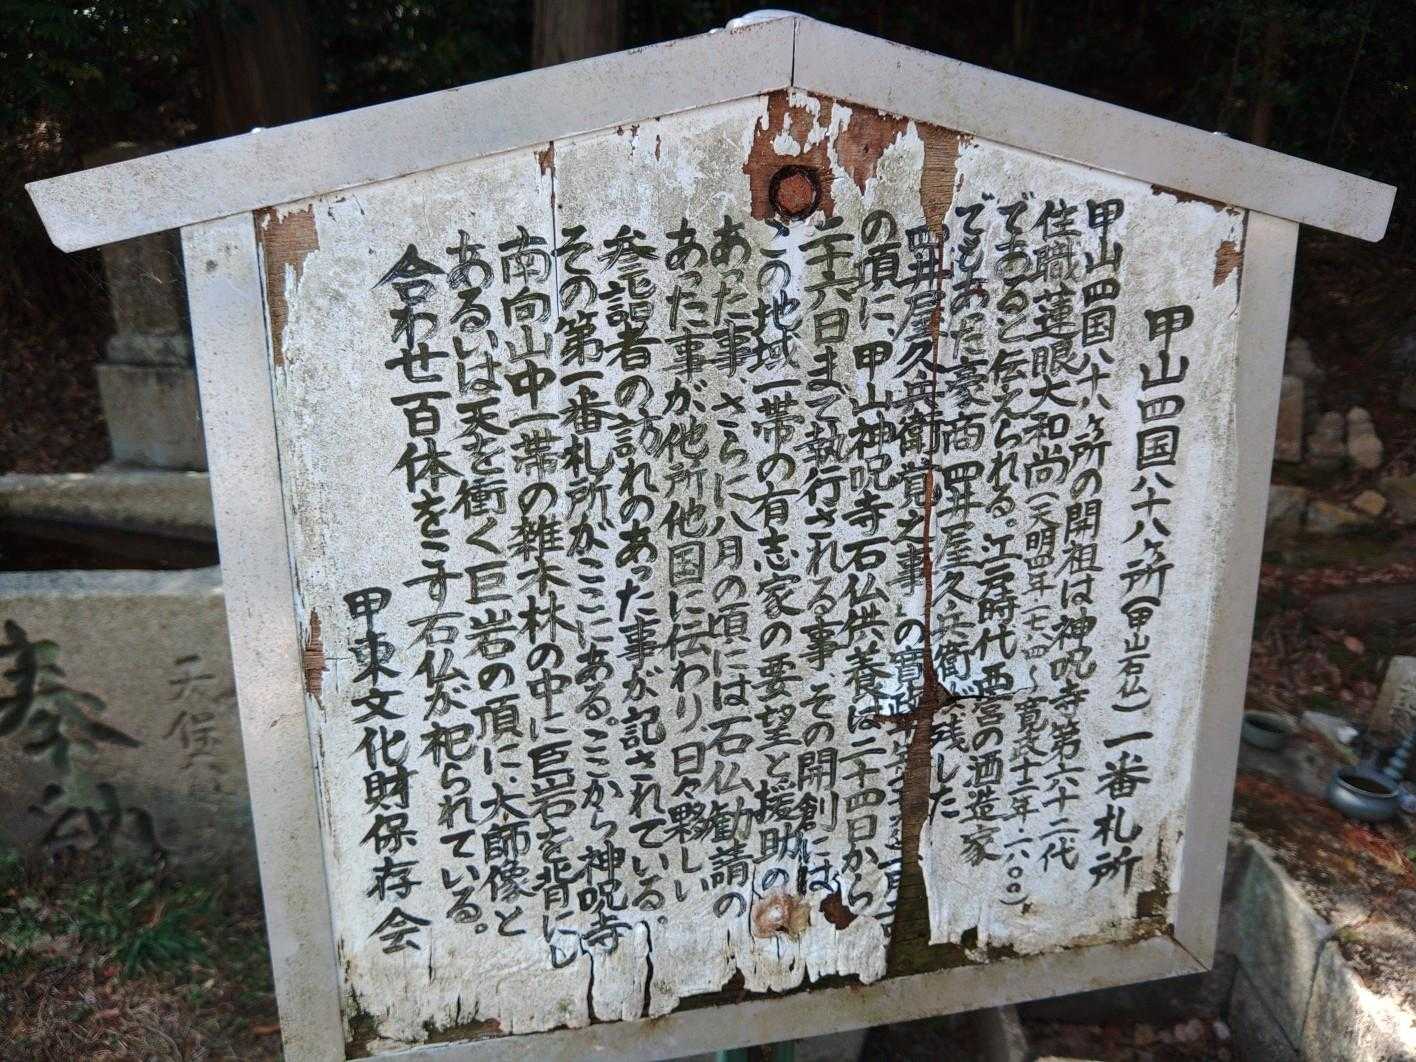 甲山四国八十八ヶ所(甲山石仏)一番札所
甲山四国八十八ヶ所の開祖は神呪寺第六十二代
住職蓮眼大和尚(天明四年一七八四~寛政十二年・一八〇〇)
であると伝えられる。江戸時代西宮の酒造家
でもあった豪商四井屋久兵衛が残した
四井屋久兵衛覚之事の寛政
の頃に、甲山神呪寺石仏供養は二十四日から
二十六日まで執行される事、その開創には
この地域一帯の有志家の要望と援助の
あった事、さらに八月の頃には石仏勧請の
あった事が他所他国に伝わり日々夥しい
参詣者の訪れのあった事が記されている。
その第一番札所がここにある。ここから神呪寺
南向山中一帯の雑木林の中に巨岩を背にし
あるいは天を衝く巨岩の頂に、大師像と
合わせ一百体をこす石仏が祀られている。
甲東文化財保存会
奉
天保
納